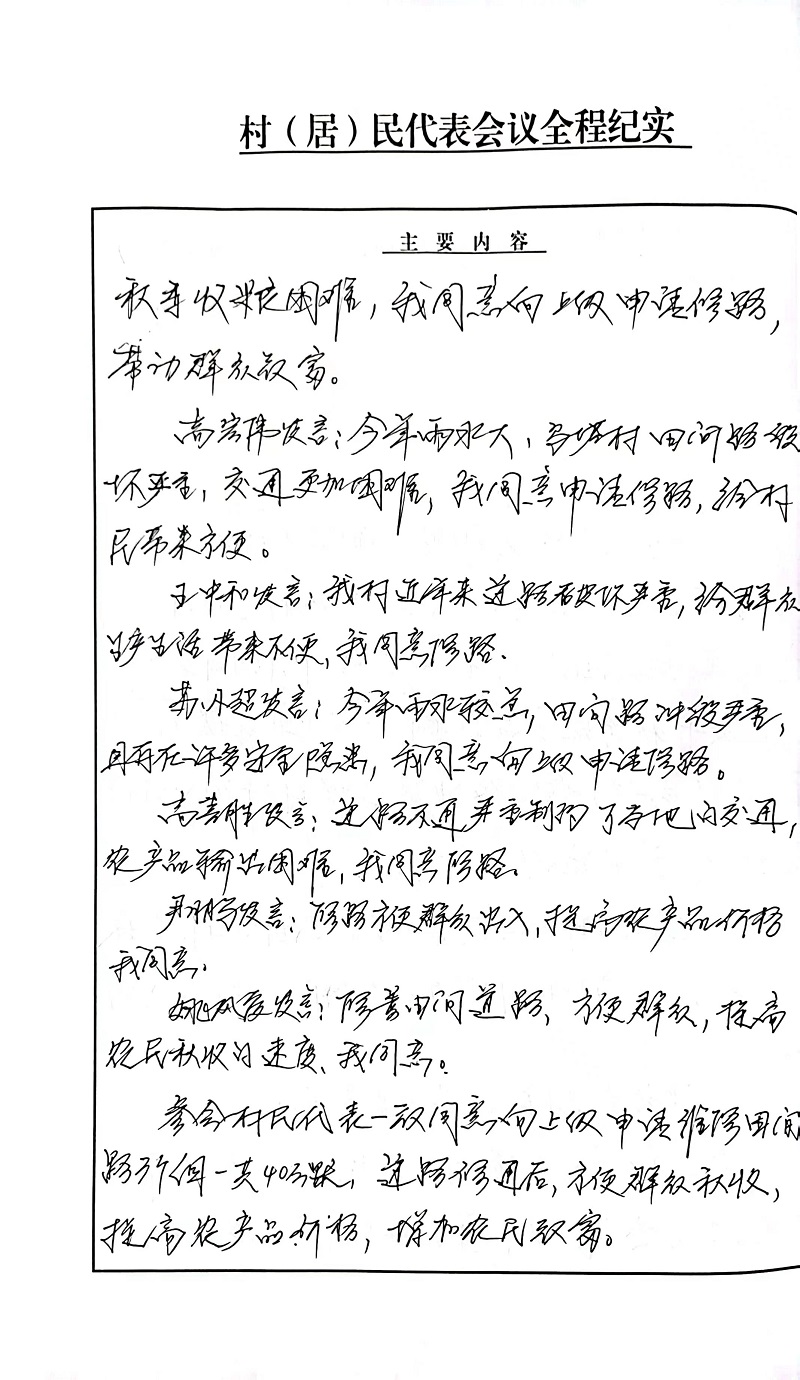 村（居）民代表会议全程纪实
主要内容
秋季收获更困难，我同意向上级申请修路，
带动群众致富。
高宏伟发言：今年雨水大，村田间路毁
坏严重，交通更加困难，我同意申请修路，给村
民带来方便。
王中和发言：我村近年来道路破坏严重，给群众
生产生活带来不便，我同意修路.
苏小超发言：今年雨水较，田间路冲毁严重，
且存在许多安全隐患，我同意向上级申请修路。
高发言：道路不通严重制约了当地的交通，
农产品输出困难，我同意修路。
发言：修路方便群众出入，提高农产品价格
我同意.
姚凤爱发言：修善田间道路，方便群众，提高
农民秋收的速度、我同意。
参会村民代表一致同意向上级申请维修田间
路一共40，道路修通后，方便群众秋收，
提高农产品价格，增加农民致富。